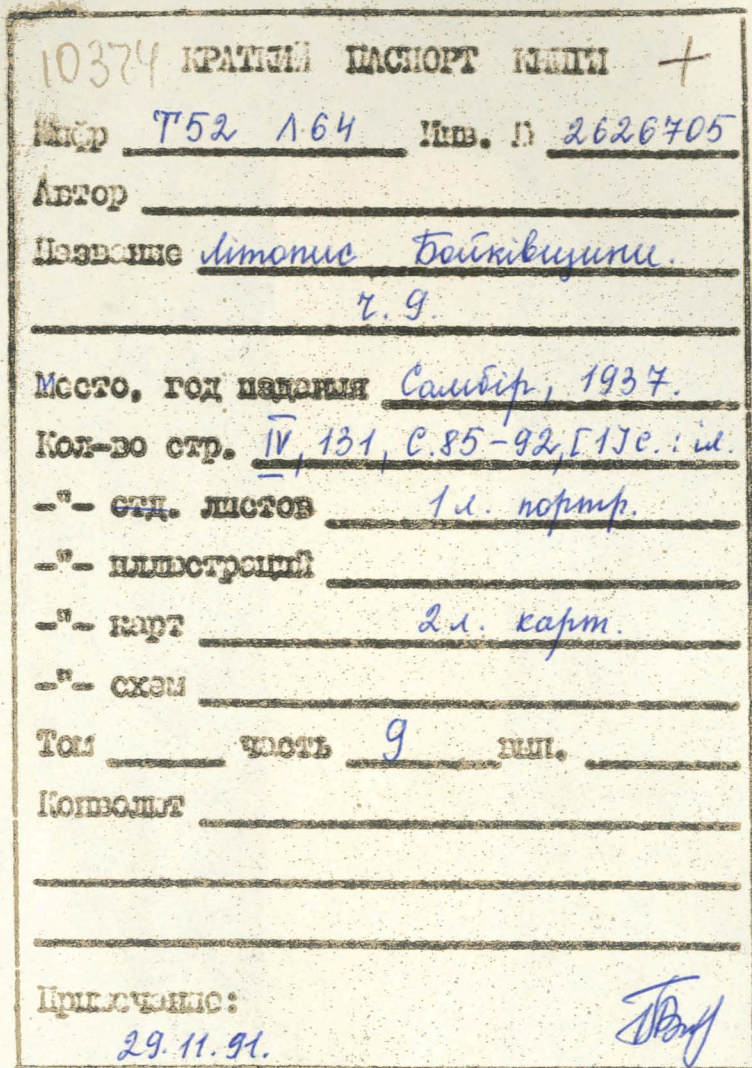 10374 КРАТКИЙ ПАСПОРТ КНИГИ +
Шифр Т52 Л64 Инв. № 2626705
Автор
Название Літопис Бойківщини.
ч. 9.
Место, год издания Самбір, 1937.
Кол-во стр. IV, 131, С.85-92, [1] с. : ил.
-"- отд. листов 1 л. портр.
-"- иллюстраций
-"- карт 2 л. карт.
-"- схем
Том часть 9 вып.
Конволют
Примечание:
29.11.91.